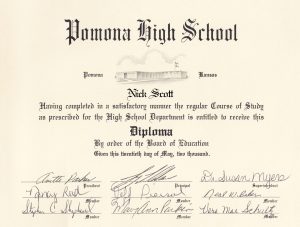 Pomona High School
Pomona Kansas
Nick Scott
Having completed in a satisfactory manner the regular Course of Study
as prescribed for the High School Department is entitled to receive this
Diploma
By order of the Board of Education
Given this twentieth day of May, two thousand.
Dr. Susan Myers
President Principal Superintendent
Nancy Reed Jeff Pierson Neal W. Baker
Member Member Member
Mary Ann Parker Vera Mae Schultz
Member Member Member